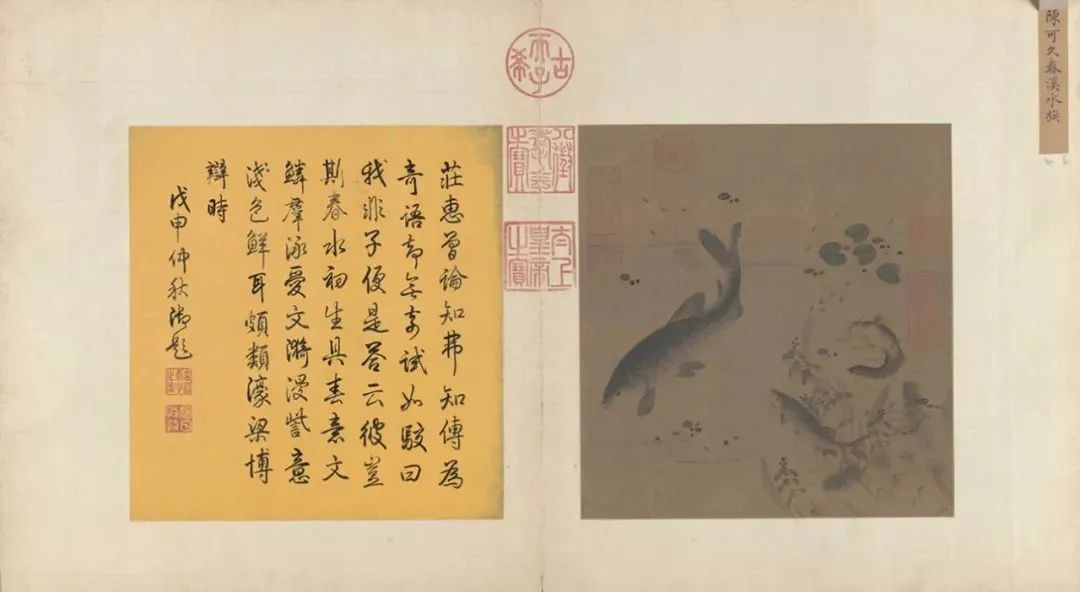 陳可久春溪水族
古希天子
八徵耄念之寶
太上皇帝之寶
莊惠曾論知弗知傳為
奇語却無奇試如駁曰
我非子便是荅云彼豈
斯春水初生具春意文
鱗羣泳愛文漪漫訾意
淺色鮮耳頗類濠梁博
辯時
戊申仲秋御題